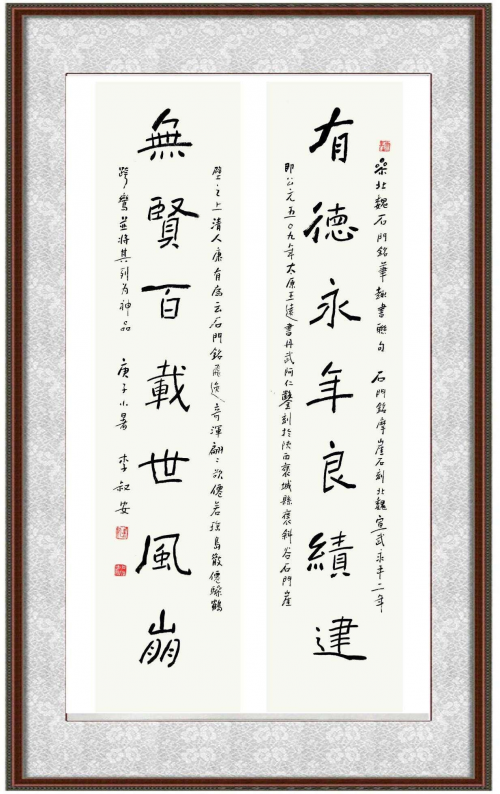 采北魏石門銘筆趣書聯句 石門銘摩崖石刻北魏宣武永平二年
有德永年良績建
即公元五〇九年太原王遠書丹武阿仁鑿刻於陝西褒城縣褒斜谷石門崖
壁之上清人康有為云石門銘飛逸奇渾翩〻欲僊若瑤島散僊驂鶴
無賢百載世風崩
跨鸞並將其列為神品 庚子小暑 李叔安